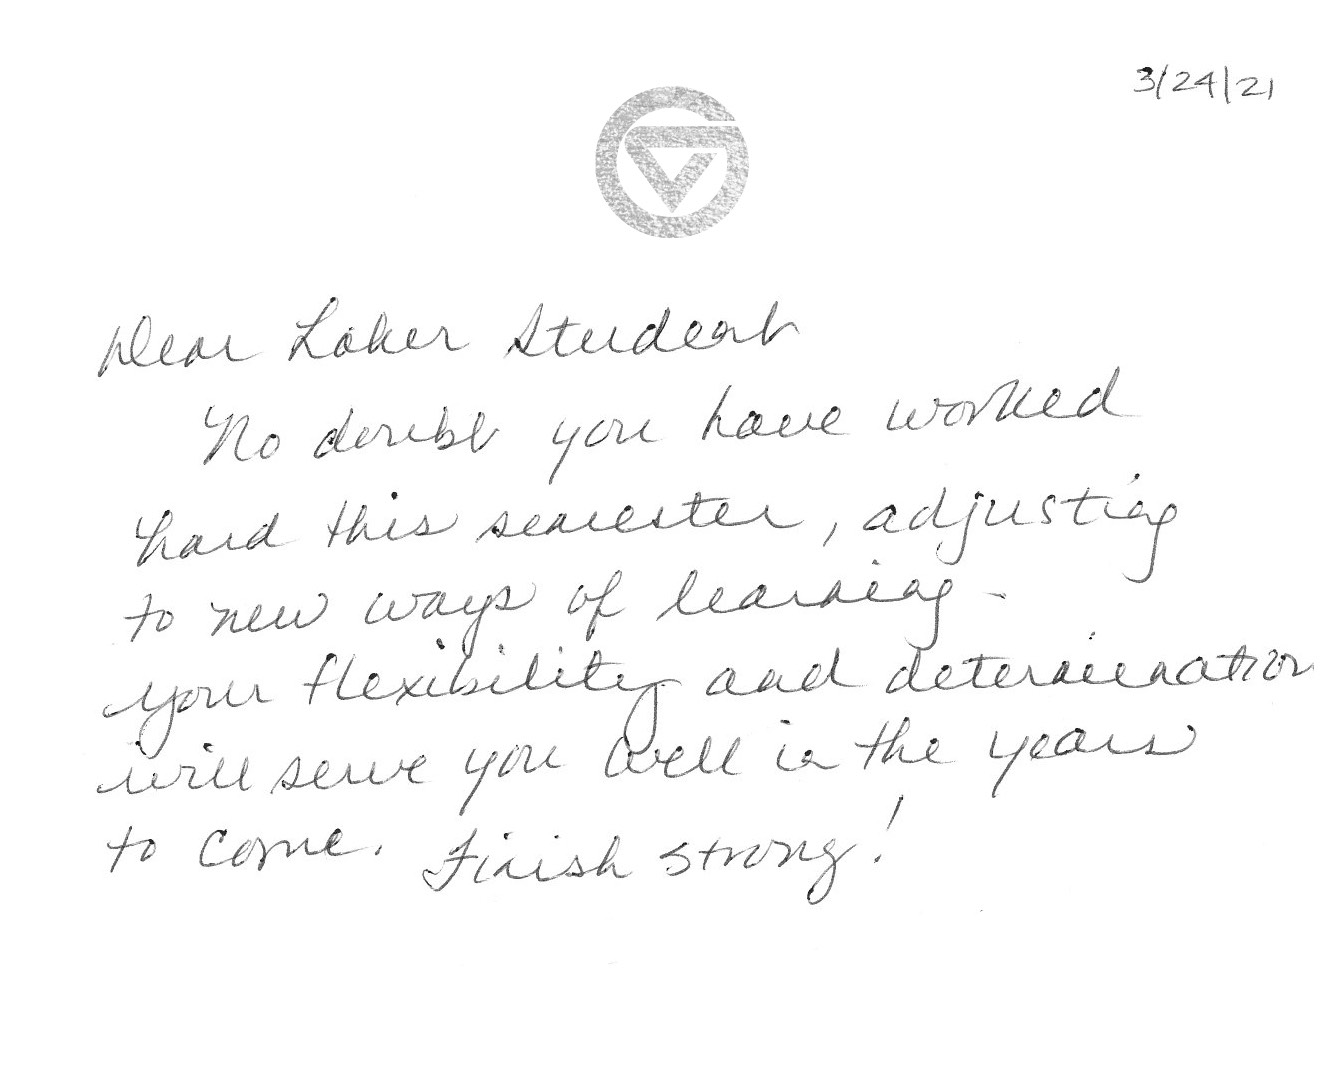 3/24/21
Dear Laker Student
No doubt you have worked
hard this semester, adjusting
to new ways of learning.
your flexibility and determination
will serve you well in the years
to come. Finish strong!